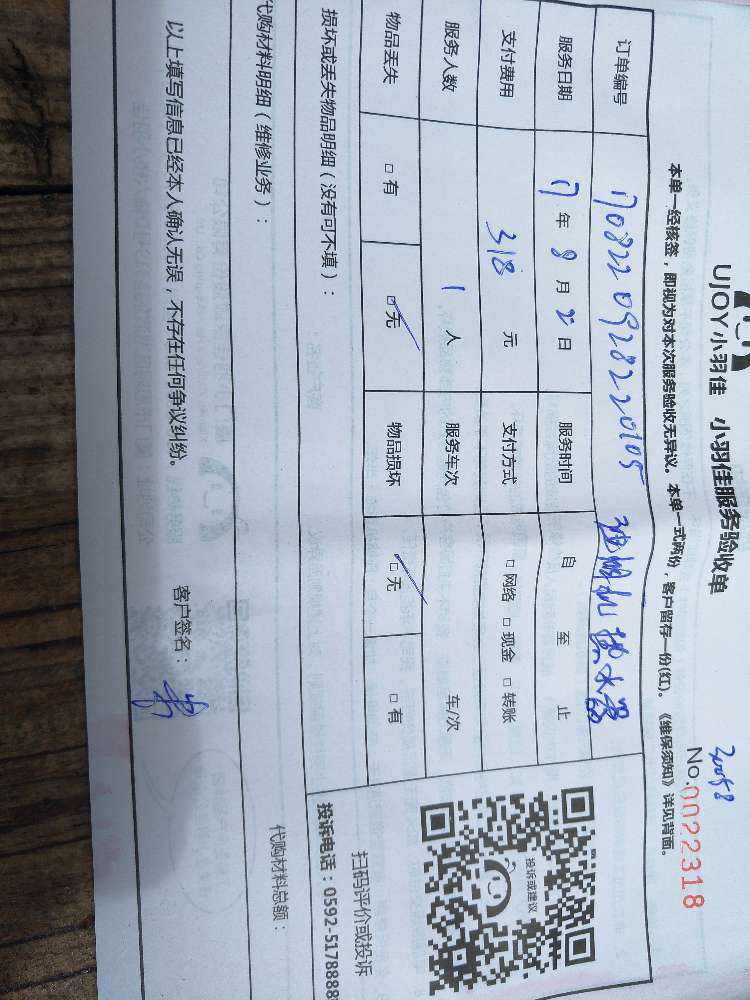 UJOY小羽佳 小羽佳服务验收单
30058
No.0022318
本单一经核签，即视为对本次服务验收无异议。本单一式两份，客户留存一份(红)。《维保须知》详见背面。
订单编号 1708220928220105 油烟机 热水器
服务日期 17年8月2日 服务时间 自 至 止
支付费用 318 元 支付方式 □网络 □现金 □转账
服务人数 1 人 服务车次 车/次
物品丢失 □有 □无 物品损坏 □无 □有
投诉或建议
扫码评价或投诉
投诉电话：0592-5178888
损坏或丢失物品明细（没有可不填）：
代购材料明细（维修业务）：
代购材料总额：
以上填写信息已经本人确认无误，不存在任何争议纠纷。
客户签名：